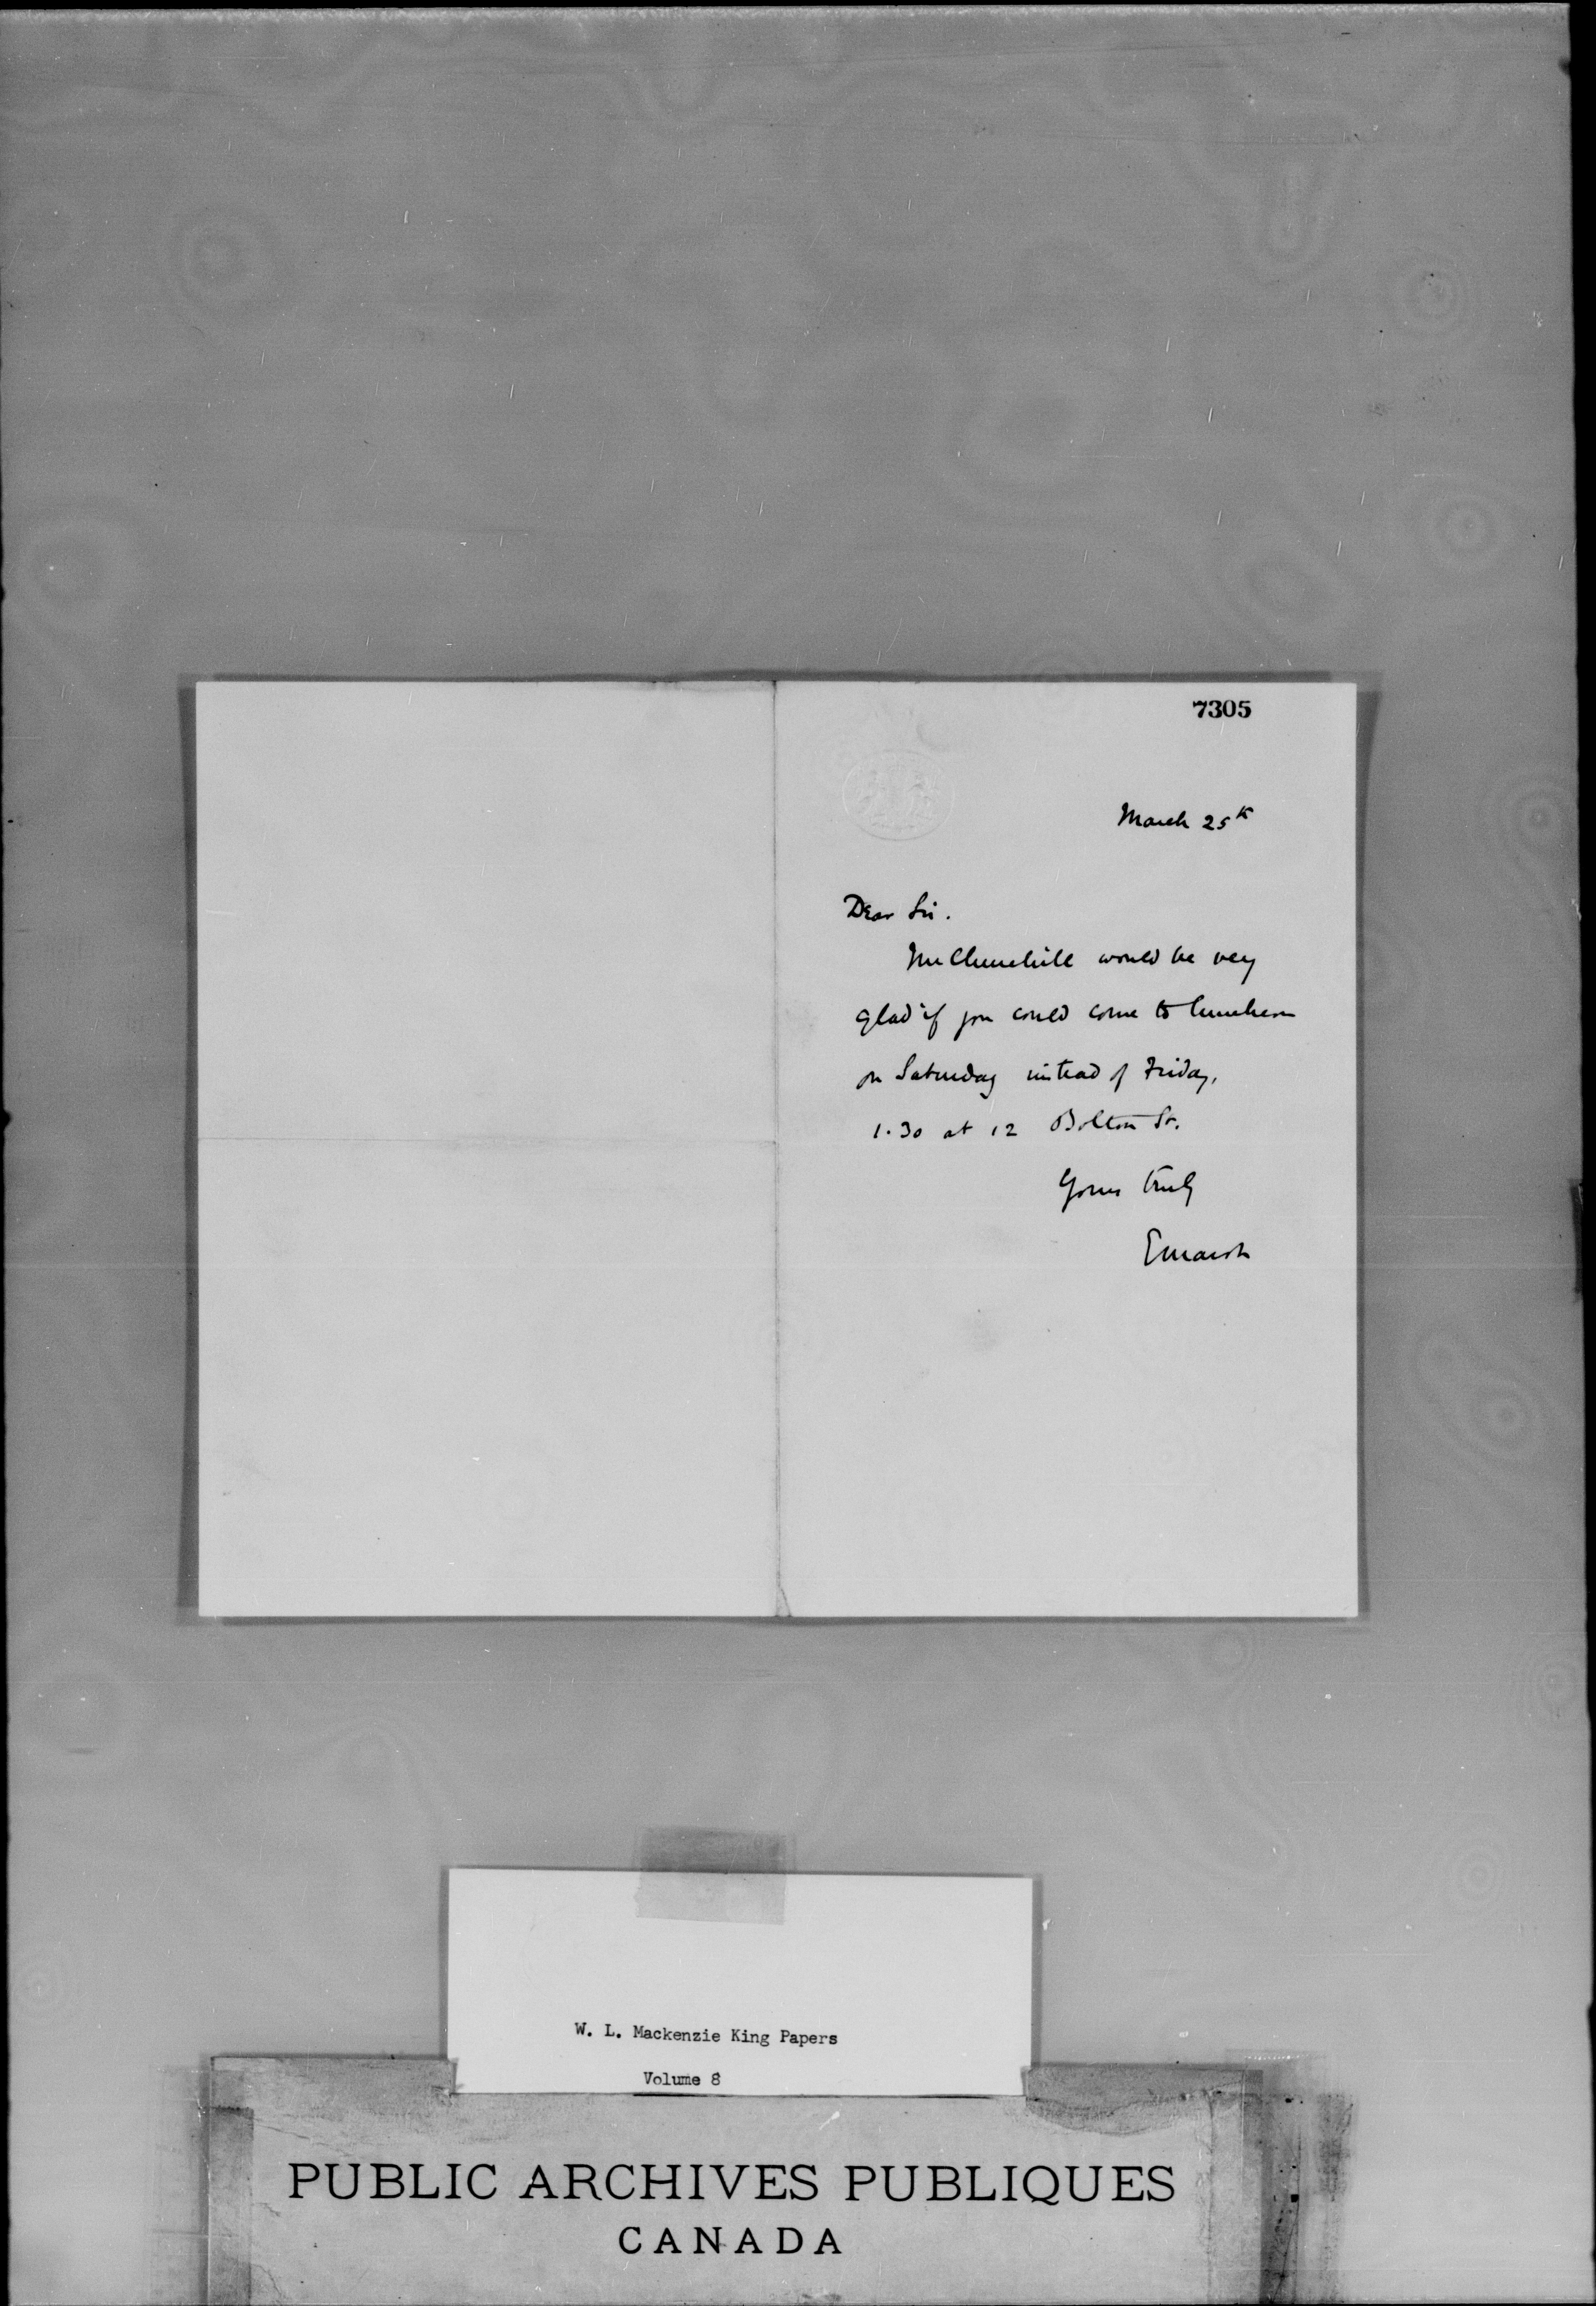 7305
March 25th
Dear Sir.
Mr Churchill would be very
glad if you could come to luncheon
on Saturday instead of Friday,
1.30 at 12 Bolton St.
Yours truly
EMarsh
W. L. Mackenzie King Papers
Volume 8
PUBLIC ARCHIVES PUBLIQUES
CANADA